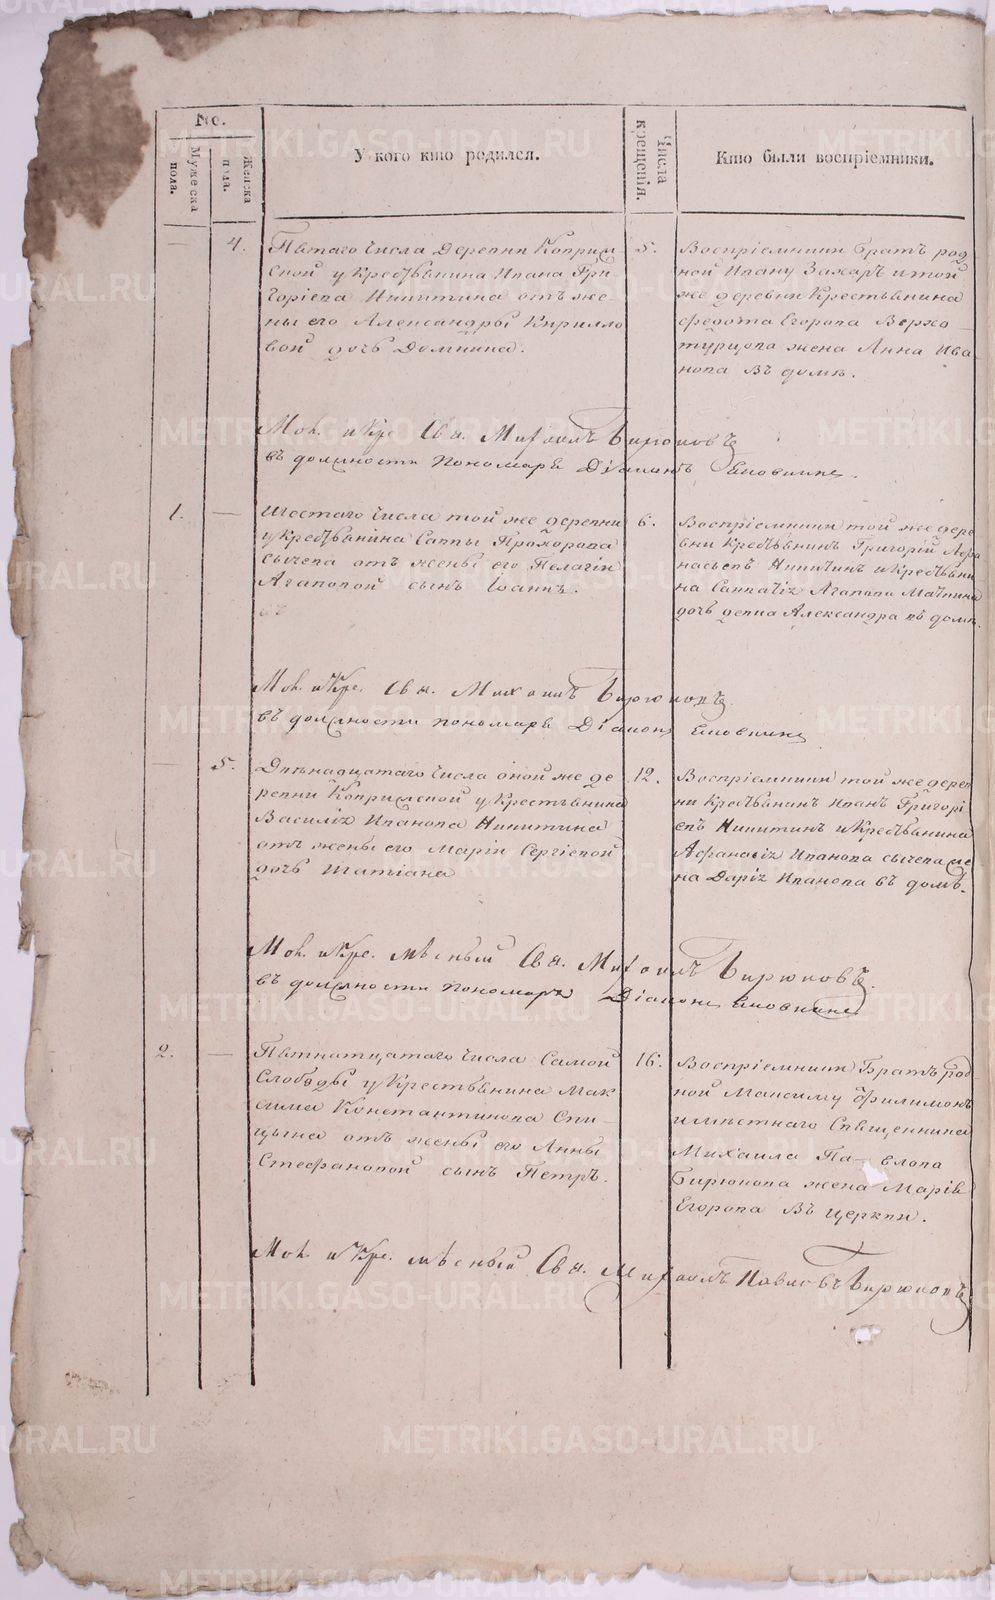 No.
Мужеска пола.
Женска пола.
У кого кто родился.
Числа крещенія.
Кто были воспріемники.
4.
Пятаго числа Деревни Коприн
ской у крестьянина Ивана Гри
горіева Никитина отъ же-
ны его Александры Кирилло
вой дочь Домнина.
5.
Воспріемники братъ род
ной Ивану Захаръ и той
же деревни Крестьянина
Федота Егорова Верхо-
турцова жена Анна Ива
нова въ домѣ.
Мол. и Кре. Свя. Михаилъ Бирюковъ
въ должности пономаря Діаконъ
1.
Шестаго числа той же деревни
у крестьянина Саввы Прохорова
Сычева отъ жены его Пелагіи
Агаповой сынъ Іоаннъ.
6.
Воспріемники той же дере
вни Крестьянинъ Григорій Афа
насьевъ Никитинъ и Крестьяни
на Агапова
дочь девка Александра въ домѣ.
Мол. и Кре. Свя. Михаилъ Бирюковъ
въ должности пономаря Діаконъ
5.
Двенадцатаго числа оной же де
ревни Копринской у Крестьянина
Василія Иванова Никитина
отъ жены его Маріи Сергіевой
дочь Татіана
12.
Воспріемники той же дерев
ни Крестьянинъ Иванъ Григорі
евъ Никитинъ и Крестьянина
Афанасія Иванова Сычева же
на Дарія Иванова въ домѣ.
Мол. и Кре. мѣсный Свя. Михаилъ Бирюковъ.
въ должности пономаря Діаконъ
2.
Пятнатцатаго числа Самой
Слободы у Крестьянина Мак
сима Константинова Спи-
цына отъ жены его Анны
Стефановой сынъ Петръ.
16.
Воспріемники Братъ род
ной Максиму Филимонъ
и мѣстнаго Священника
Михаила Павлова
Бирюкова жена Марія
Егорова въ церкви.
Мол. и Кре. мѣсный Свя. Михаилъ Павловъ Бирюковъ
METRIKI.GASO-URAL.RU